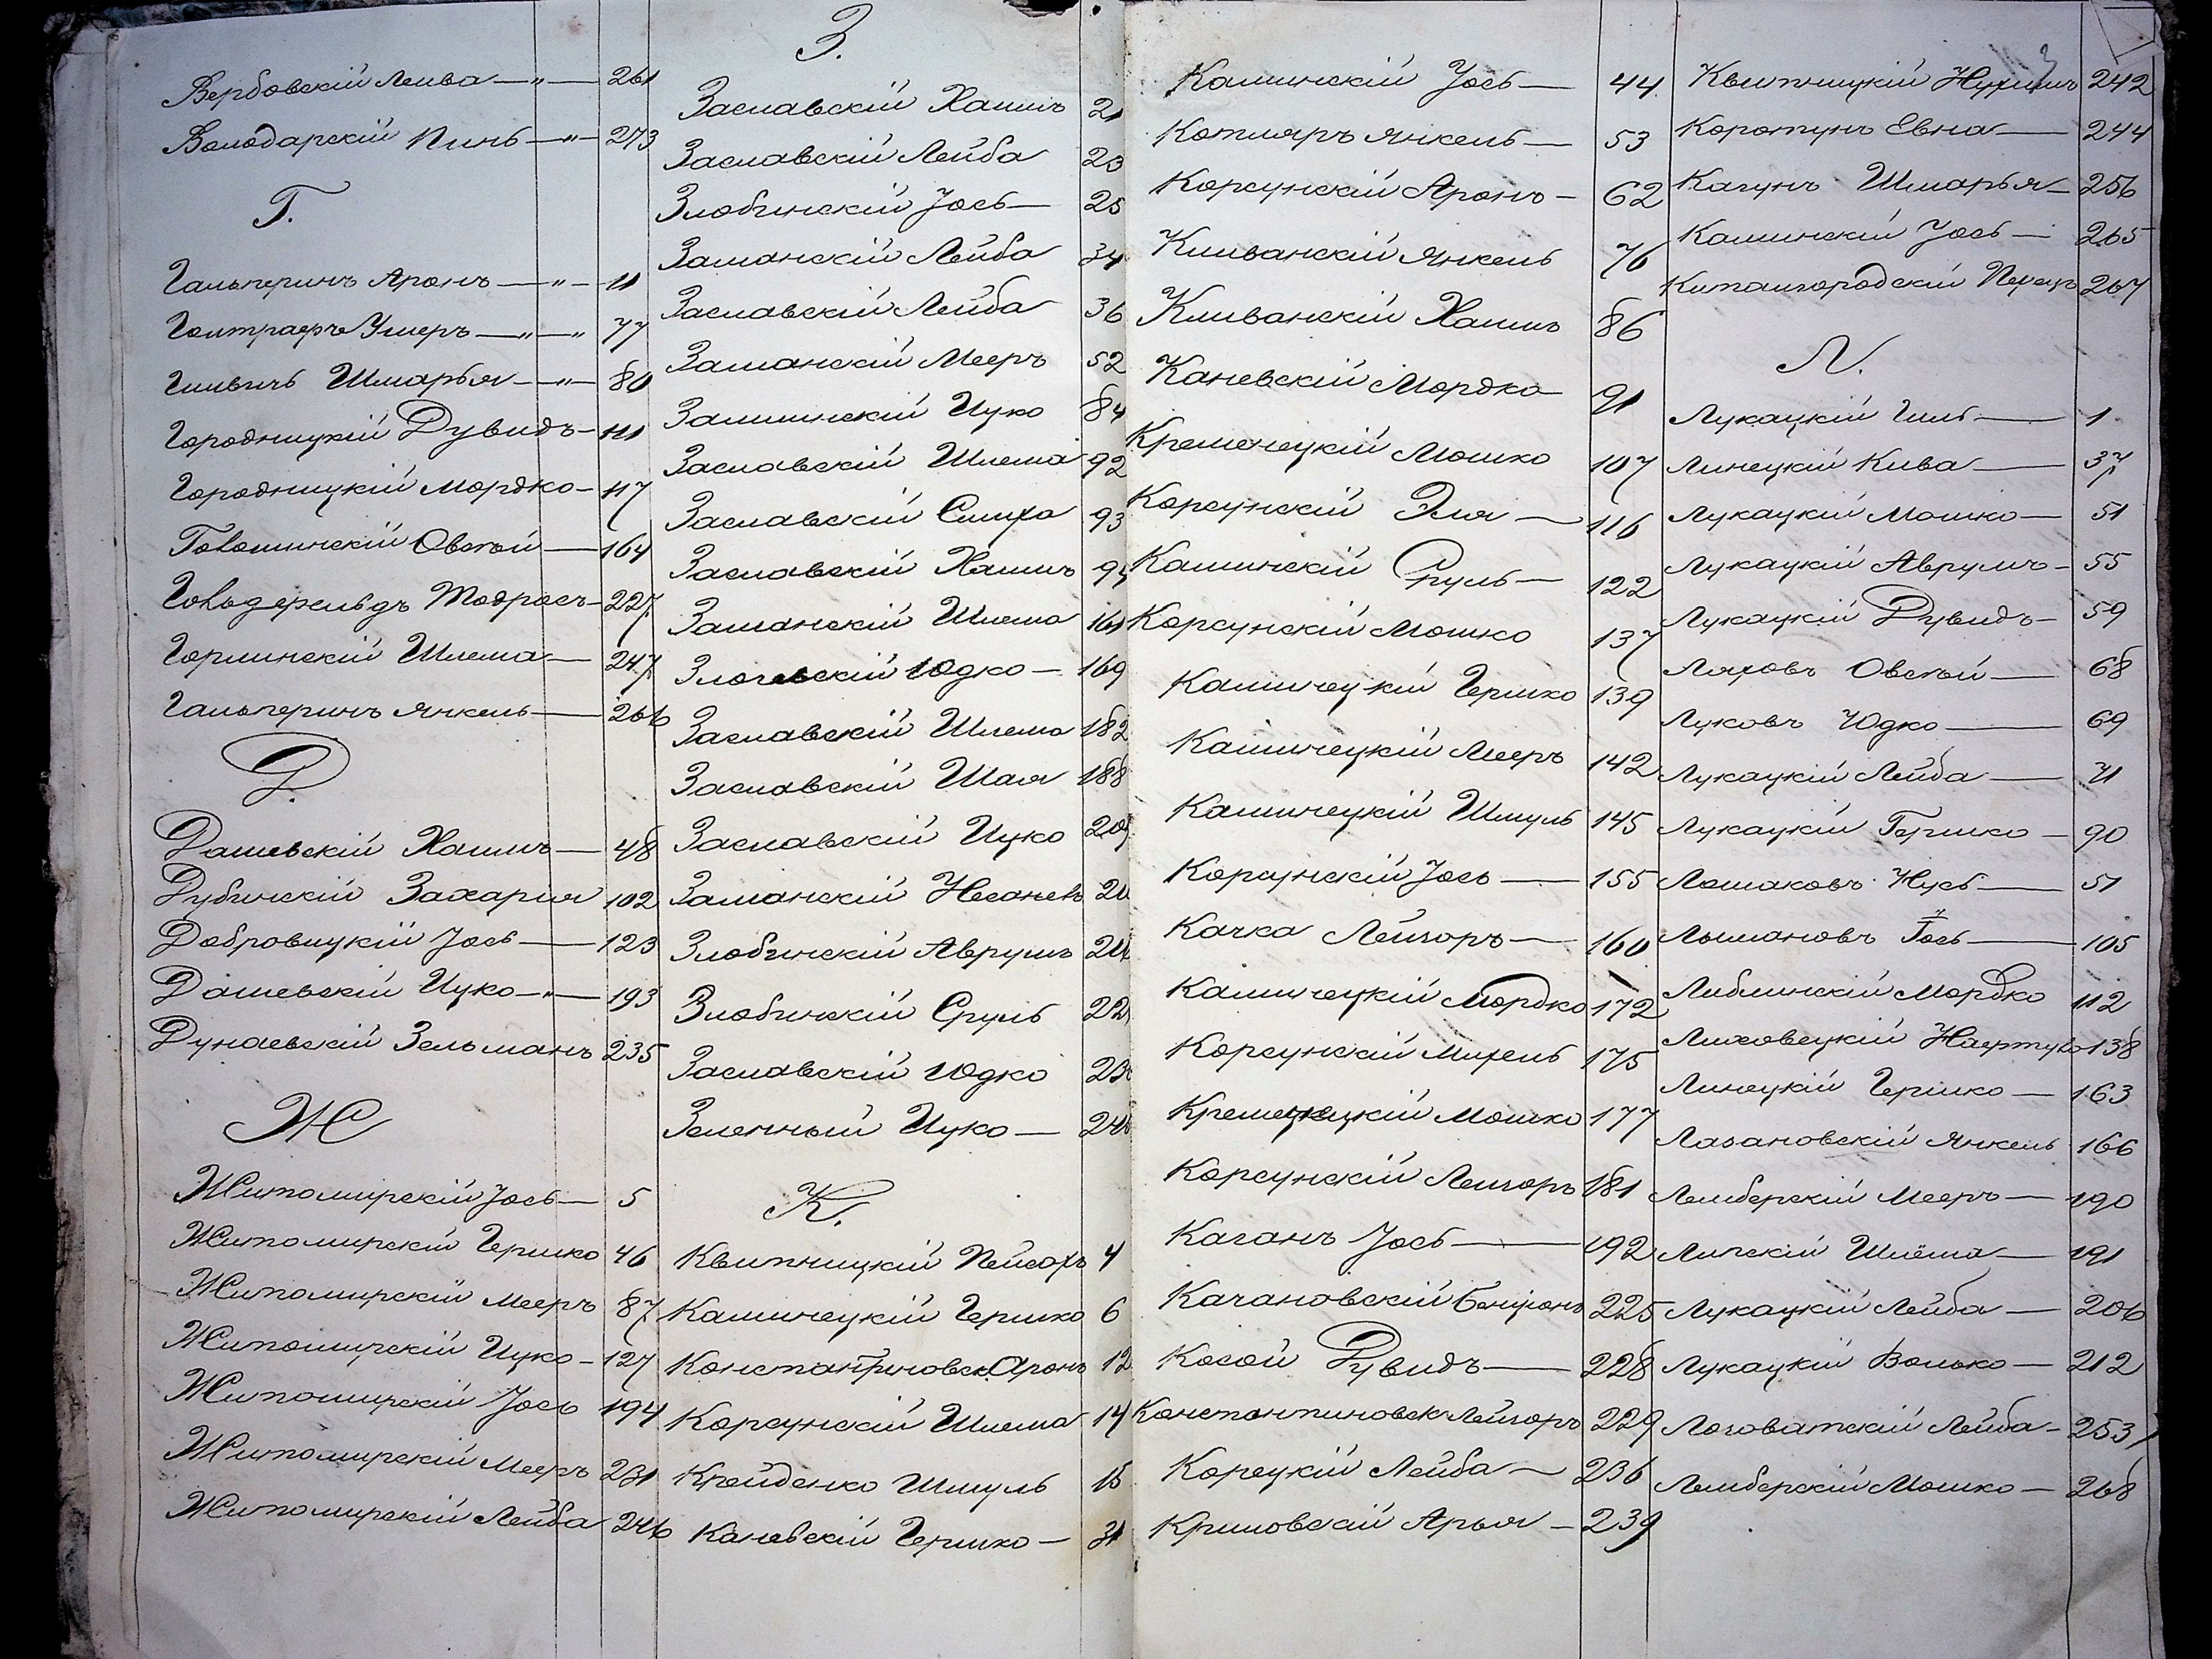 Вербовскій Лейба —"— 261
Володарскій Пинь —"— 273
Г.
Гальперинъ Аронъ —"— 11
Гонтраеръ Умеръ —"—" 77
Гилвичь Шмарья —"— 80
Городницкій Дувидъ — 111
Городницкій Мордко — 117
Говошинскій Овсѣй — 164
Тодросъ — 227
Горлинскій Шлема — 247
Гальперинъ Янкель — 266
Д.
Дашевскій Хаимъ — 48
Дубинскій Захарія 102
Добровицкій Іось — 123
Дашевскій Ицко —"— 193
Дунаевскій Зельманъ 235
Ж
Житомирскій Іось — 5
Житомирскій Гершко 46
Житомирскій Мееръ 87
Житомирскій Ицко — 127
Житомирскій Іось 194
Житомирскій Мееръ 231
Житомирскій Лейба 246
З.
Заславскій Хаимъ 21
Заславскій Лейба 23
Злобинскій Іось — 25
Заманскій Лейба 34
Заславскій Лейба 36
Заманскій Мееръ 52
Ицко 84
Заславскій Шлема 92
Заславскій Симха 93
Заславскій Хаимъ 94
Заманскій Шлема 161
Юдко — 169
Заславскій Шлема 182
Заславскій Шая 188
Заславскій Ицко
Заманскій
Злобинскій Аврумъ
Злобинскій Сруль
Заславскій Юдко
Зеленный Ицко —
К.
Квитницкій Пейсахъ 4
Каминецкій Гершко 6
Константиновск. Аронъ 12
Корсунскій Шлема 14
Крейденко Шмуль
Каневскій Гершко — 31
Калинскій Іось — 44
Котляръ Янкель — 53
Корсунскій Аронъ — 62
Кливанскій Янкель 76
Кливанскій Хаимъ 86
Каневскій Мордко 91
Кременецкій Мошко 107
Корсунскій Эля — 116
Калинскій Сруль — 122
Корсунскій Мошко 137
Каминецкій Гершко 139
Каминецкій Мееръ 142
Каминецкій Шмуль 145
Корсунскій Іось — 155
Качка Лейзоръ — 160
Каминецкій Мордко 172
Корсунскій Михель 175
Кременецкій Мошко 177
Корсунскій Лейзоръ 181
Каганъ Іось — 192
Качановскій Бенціонъ 225
Косой Дувидъ — 228
Константиновск Лейзоръ 229
Корецкій Лейба — 236
Криловскій Арья — 239
Квитницкій Нухимъ 242
Коротунъ Евна — 244
Кагунъ Шмарья — 256
Калинскій Іось — 265
Китайгородскій Перецъ 267
Л.
Лукацкій Гиль — 1
Линецкій Кива — 37
Лукацкій Мошко — 51
Лукацкій Аврумъ — 55
Лукацкій Дувидъ — 59
Ляховъ Овсѣй — 68
Луковъ Юдко — 69
Лукацкій Лейба — 71
Лукацкій Гершко — 90
Лошаковъ Нусь — 51
Лошаковъ Іось — 105
Люблинскій Мордко 112
Лиховецкій 138
Линецкій Гершко — 163
Лазановскій Янкель 166
Лемберскій Мееръ — 190
Липскій Шлёма — 191
Лукацкій Лейба — 206
Лукацкій Волько — 212
Логоватскій Лейба — 253
Лемберскій Мошко — 268